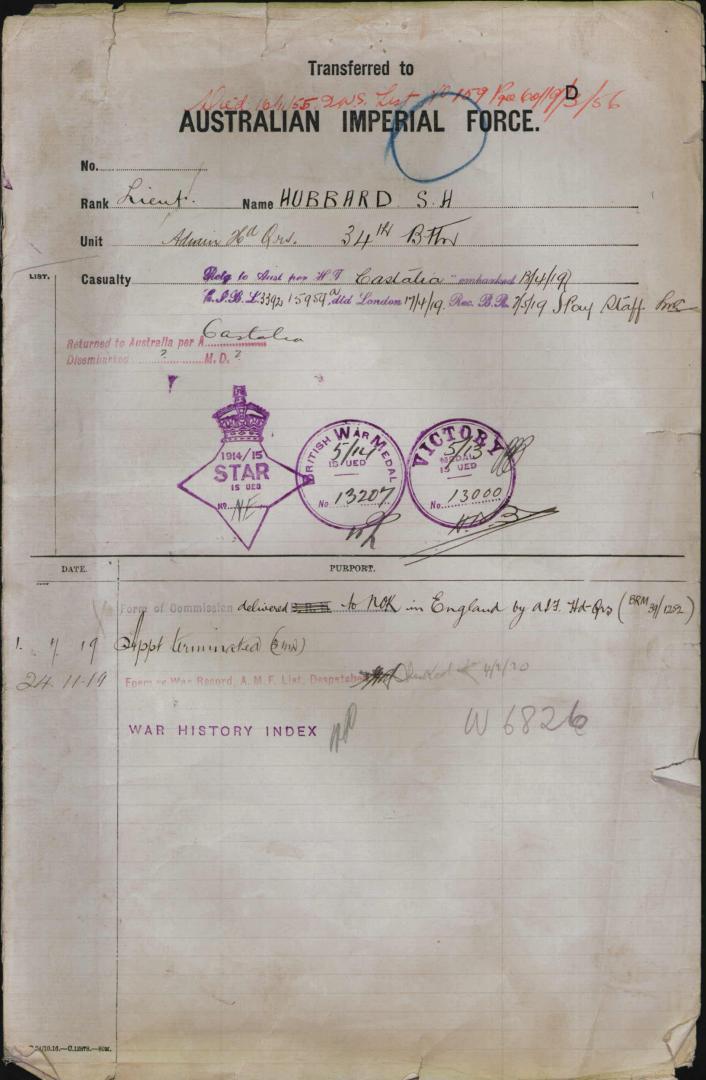 Transferred to
Died 16/1/55. List No 159 D
AUSTRALIAN IMPERIAL FORCE.
No.
Rank Lieut. Name HUBBARD S.H
Unit Admin Hd Qrs. 34th Bttn
LIST. Casualty Retg to Aust per H.T. Castalia" embarked 13/4/19
15959 dtd London 17/4/19. Rec. B.R. Pay Staff
Returned to Australia per Castalia
Disembarked ? M.D. ?
1914/15
STAR
ISSUED
No. NE
BRITISH WAR MEDAL
5/14
ISSUED
No 13207
VICTORY
5/13
MEDAL
ISSUED
No. 13000
DATE. PURPORT.
Form of Commission delivered to NOK in England by AIF Hd-Qrs (BRM 39/1252)
1. 7. 19 Appt terminated
24.11.19 Form of War Record, A.M.F. List, Despatched Checked 4/2/20
WAR HISTORY INDEX W 6826